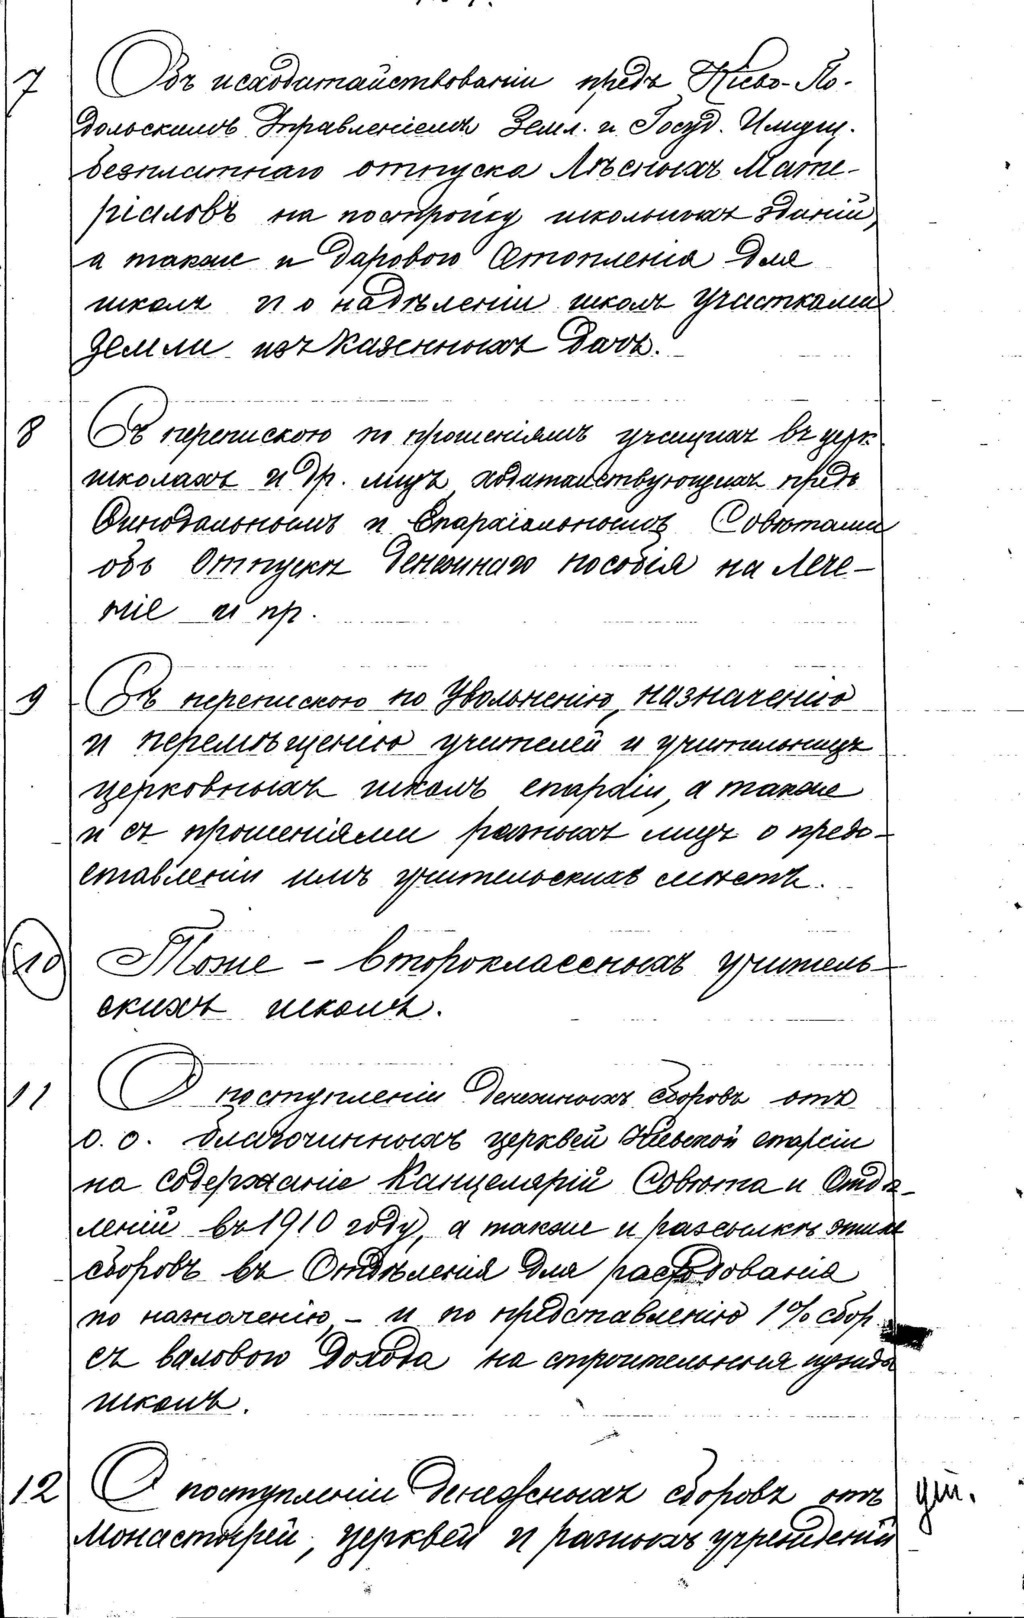 7 Объ исходатайствованіи предъ Кіево-По-
дольскимъ Управленіемъ Земл. и Госуд. Имущ.
безплатнаго отпуска Лѣсныхъ Мате-
ріаловъ на постройку школьныхъ зданій,
а также и дарового Отопленія для
школъ и о надѣленіи школъ участками
Земли изъ Казенныхъ Дачъ.
8 Съ перепискою по прошеніямъ учащихъ въ церк.
школахъ и др. лицъ, ходатайствующихъ предъ
Синодальнымъ и Епархіальнымъ Совѣтами
объ Отпускѣ денежнаго пособія на Лече-
ніе и пр.
9 Съ перепискою по Увольненію, назначенію
и перемѣщенію учителей и учительницъ
церковныхъ школъ епархіи, а также
и съ прошеніями разныхъ лицъ о предо-
ставленіи имъ учительскихъ мѣстъ.
10 Тоже - второклассныхъ учитель-
скихъ школъ.
11 О поступленіи Денежныхъ сборовъ отъ
о. о. благочинныхъ церквей Кіевской епархіи
на содержаніе Канцелярій Совѣта и Отдѣ-
леній въ 1910 году, а также и разсылкѣ этихъ
сборовъ въ Отдѣленія для расходованія
по назначенію, - и по представленію 1% сбор
съ валового Дохода на строительныя нужды
школъ.
12 О поступленіи Денежныхъ сборовъ отъ
Монастырей, церквей и разныхъ учрежденій